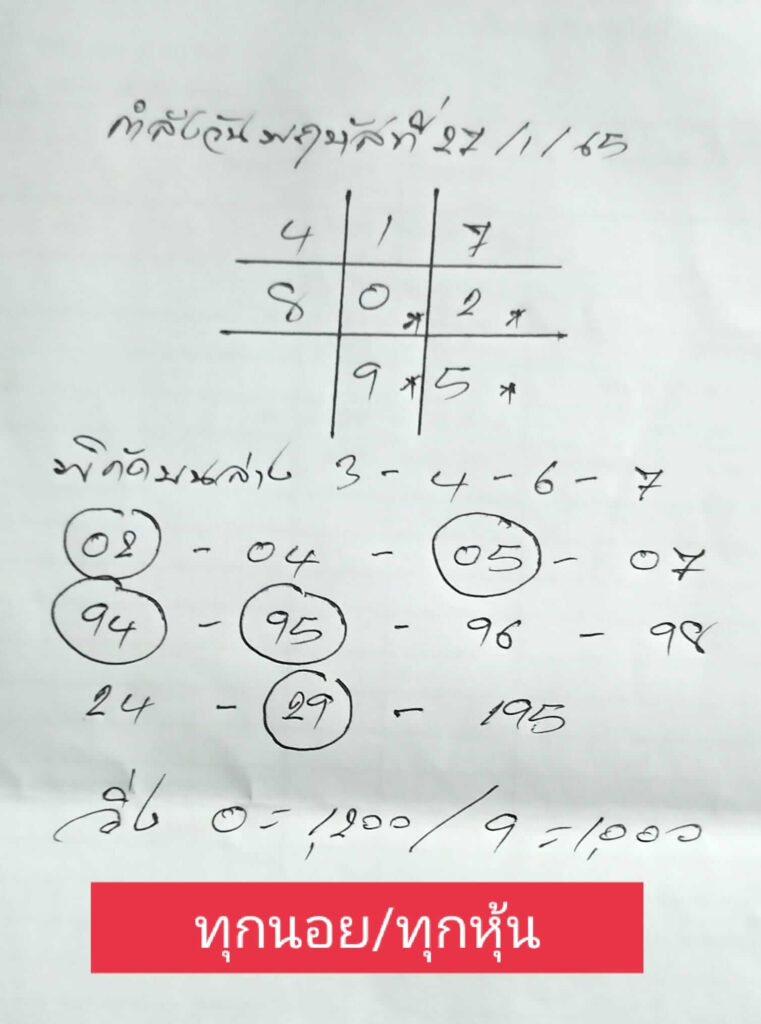 กำลังวันพฤหัสที่ 27/1/65
4 1 7
8 0* 2*
9* 5*
พิกัดบนล่าง 3-4-6-7
02 - 04 - 05 - 07
94 - 95 - 96 - 98
24 - 29 - 195
วิ่ง 0=1,200/9=1,000
ทุกนอย/ทุกหุ้น